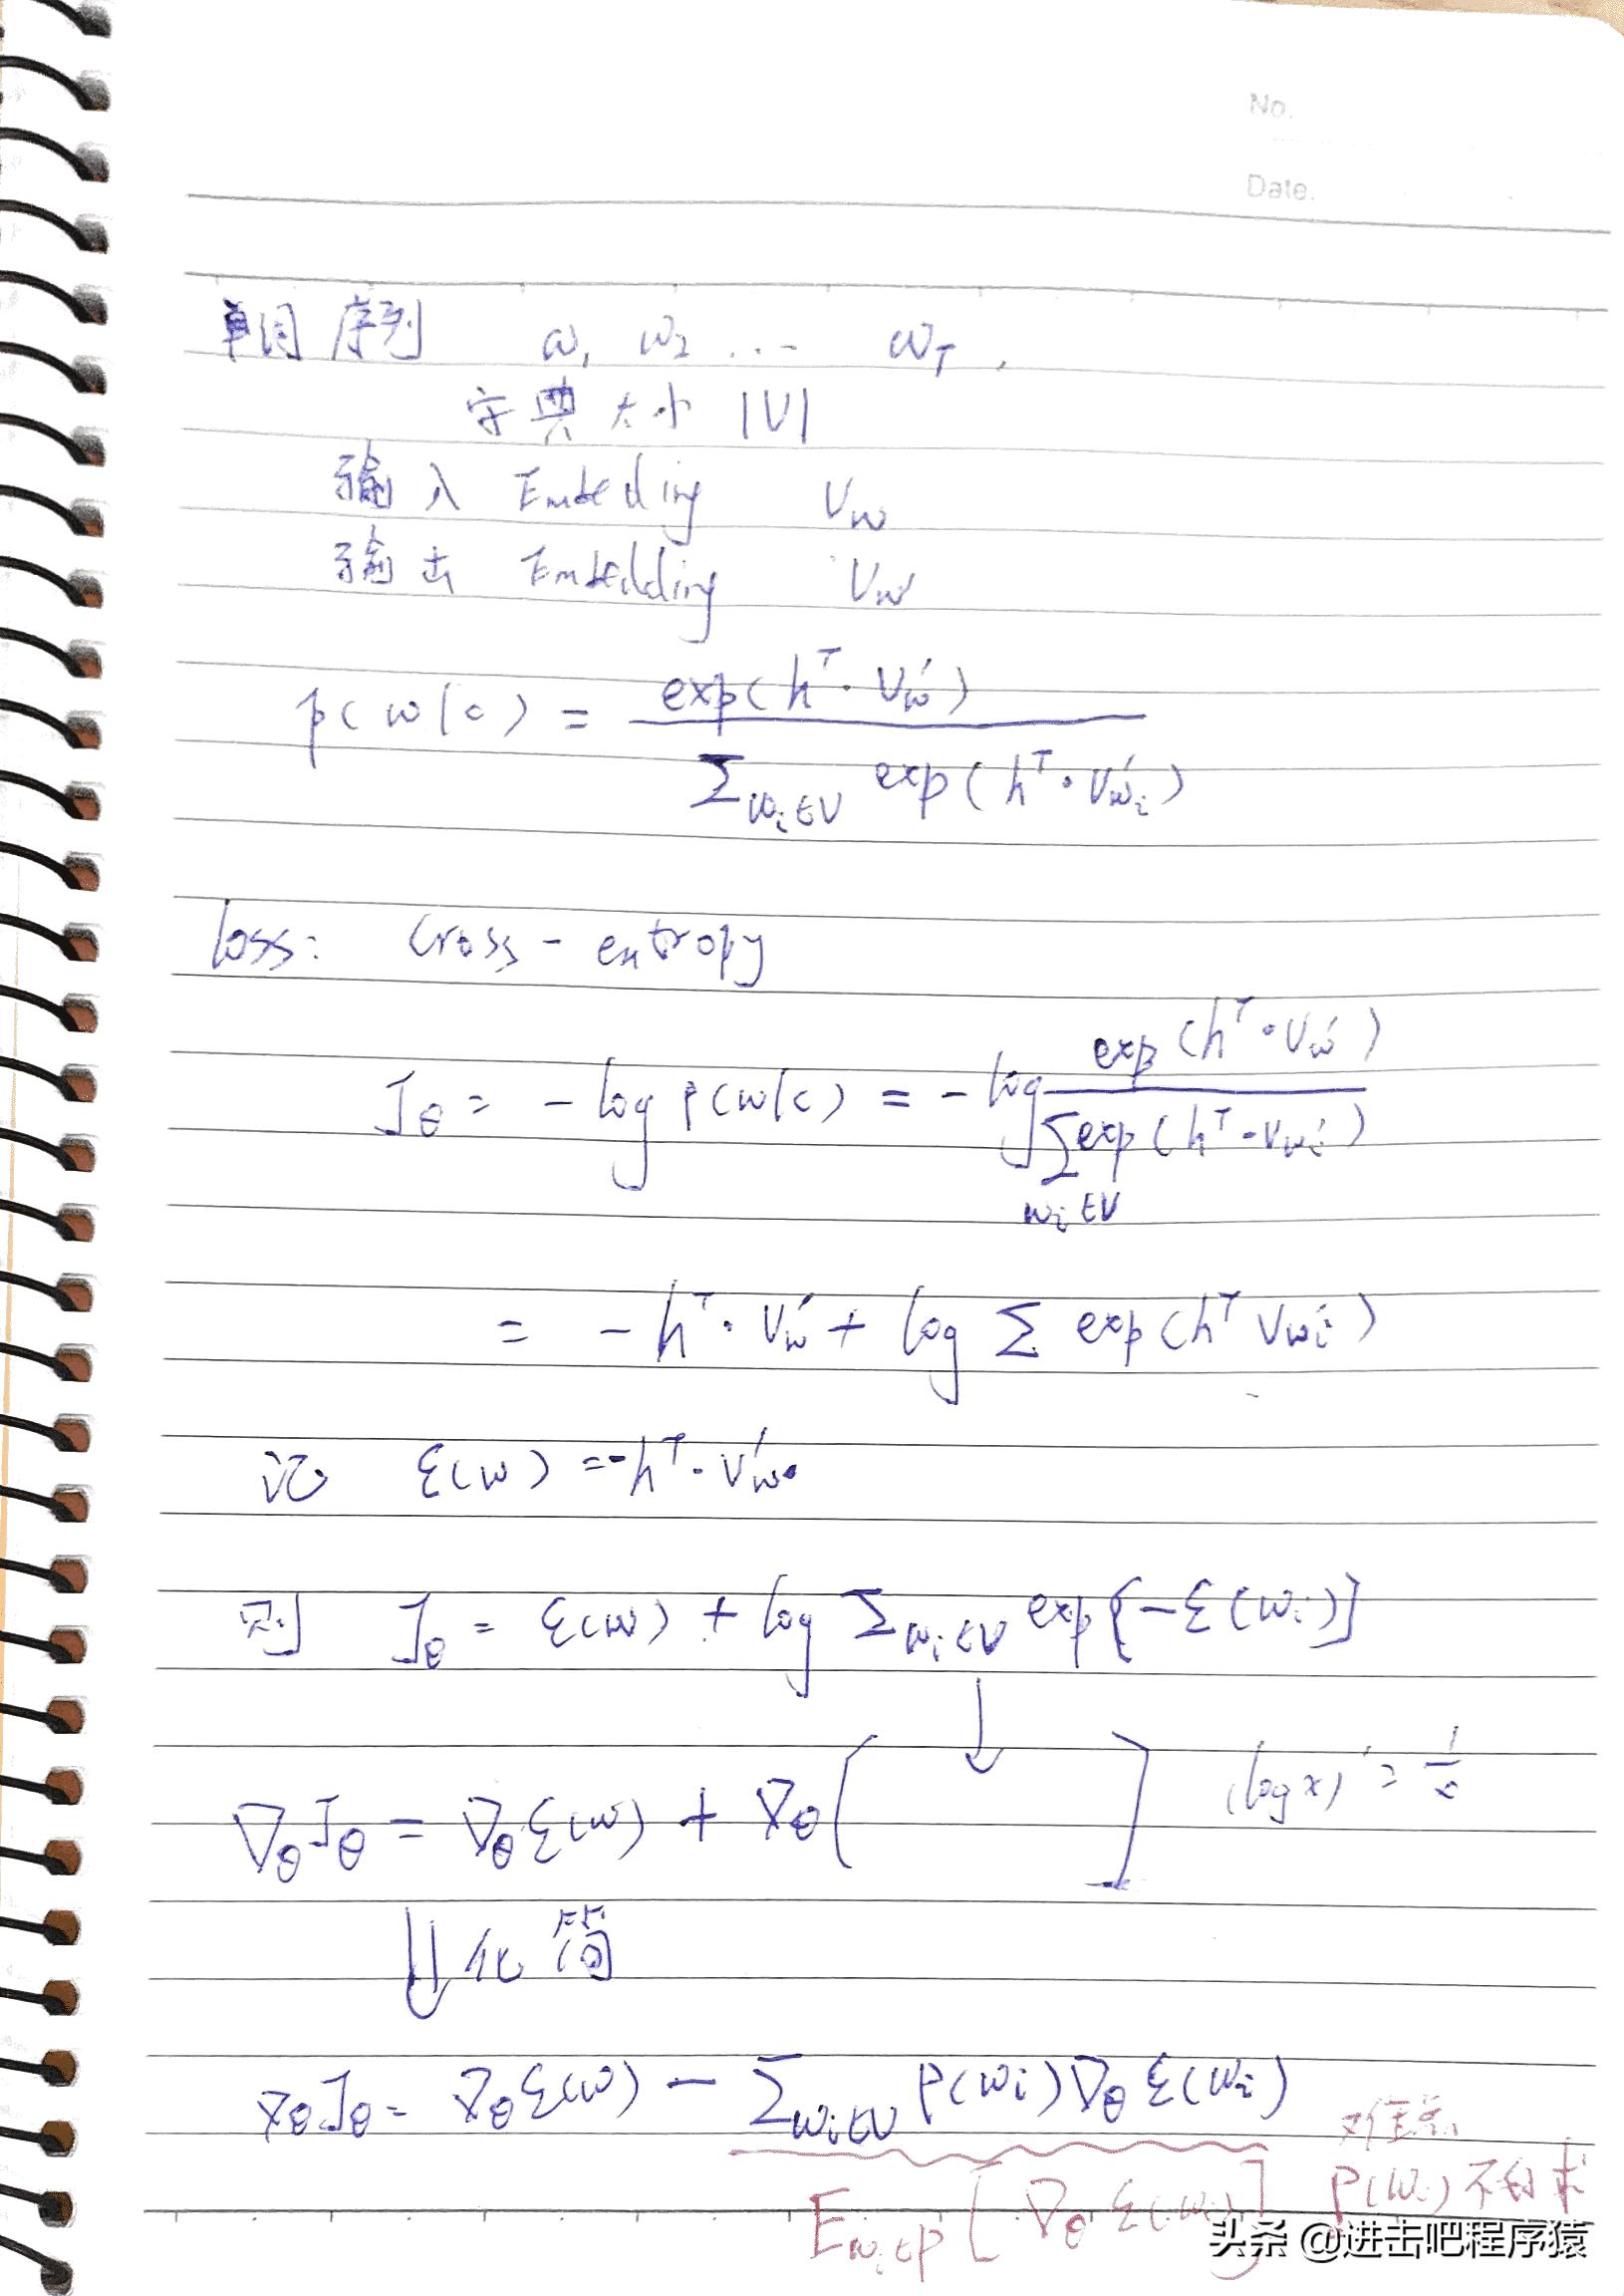 No.
Date.
单词序列 w₁ w₂ ... w_T ,
字典大小 |V|
输入 Embedding V_w
输出 Embedding V_w'
p(w|c) = exp(h^T · V_w') / Σ_{w_i∈V} exp(h^T · V_{w_i}')
loss: Cross-entropy
J_θ = -log p(w|c) = -log exp(h^T · V_w') / Σ_{w_i∈V} exp(h^T · V_{w_i}')
= -h^T · V_w' + log Σ exp(h^T V_{w_i}')
记 ξ(w) = -h^T · V_w'
则 J_θ = ξ(w) + log Σ_{w_i∈V} exp[-ξ(w_i)]
↓
∇_θ J_θ = ∇_θ ξ(w) + ∇_θ [ ] (log x)' = 1/x
⇓ 化简
∇_θ J_θ = ∇_θ ξ(w) - Σ_{w_i∈V} P(w_i) ∇_θ ξ(w_i)
难点
E_{w_i∈p} [∇_θ ξ(w_i)] P(w_i) 不好求
头条 @进击吧程序猿